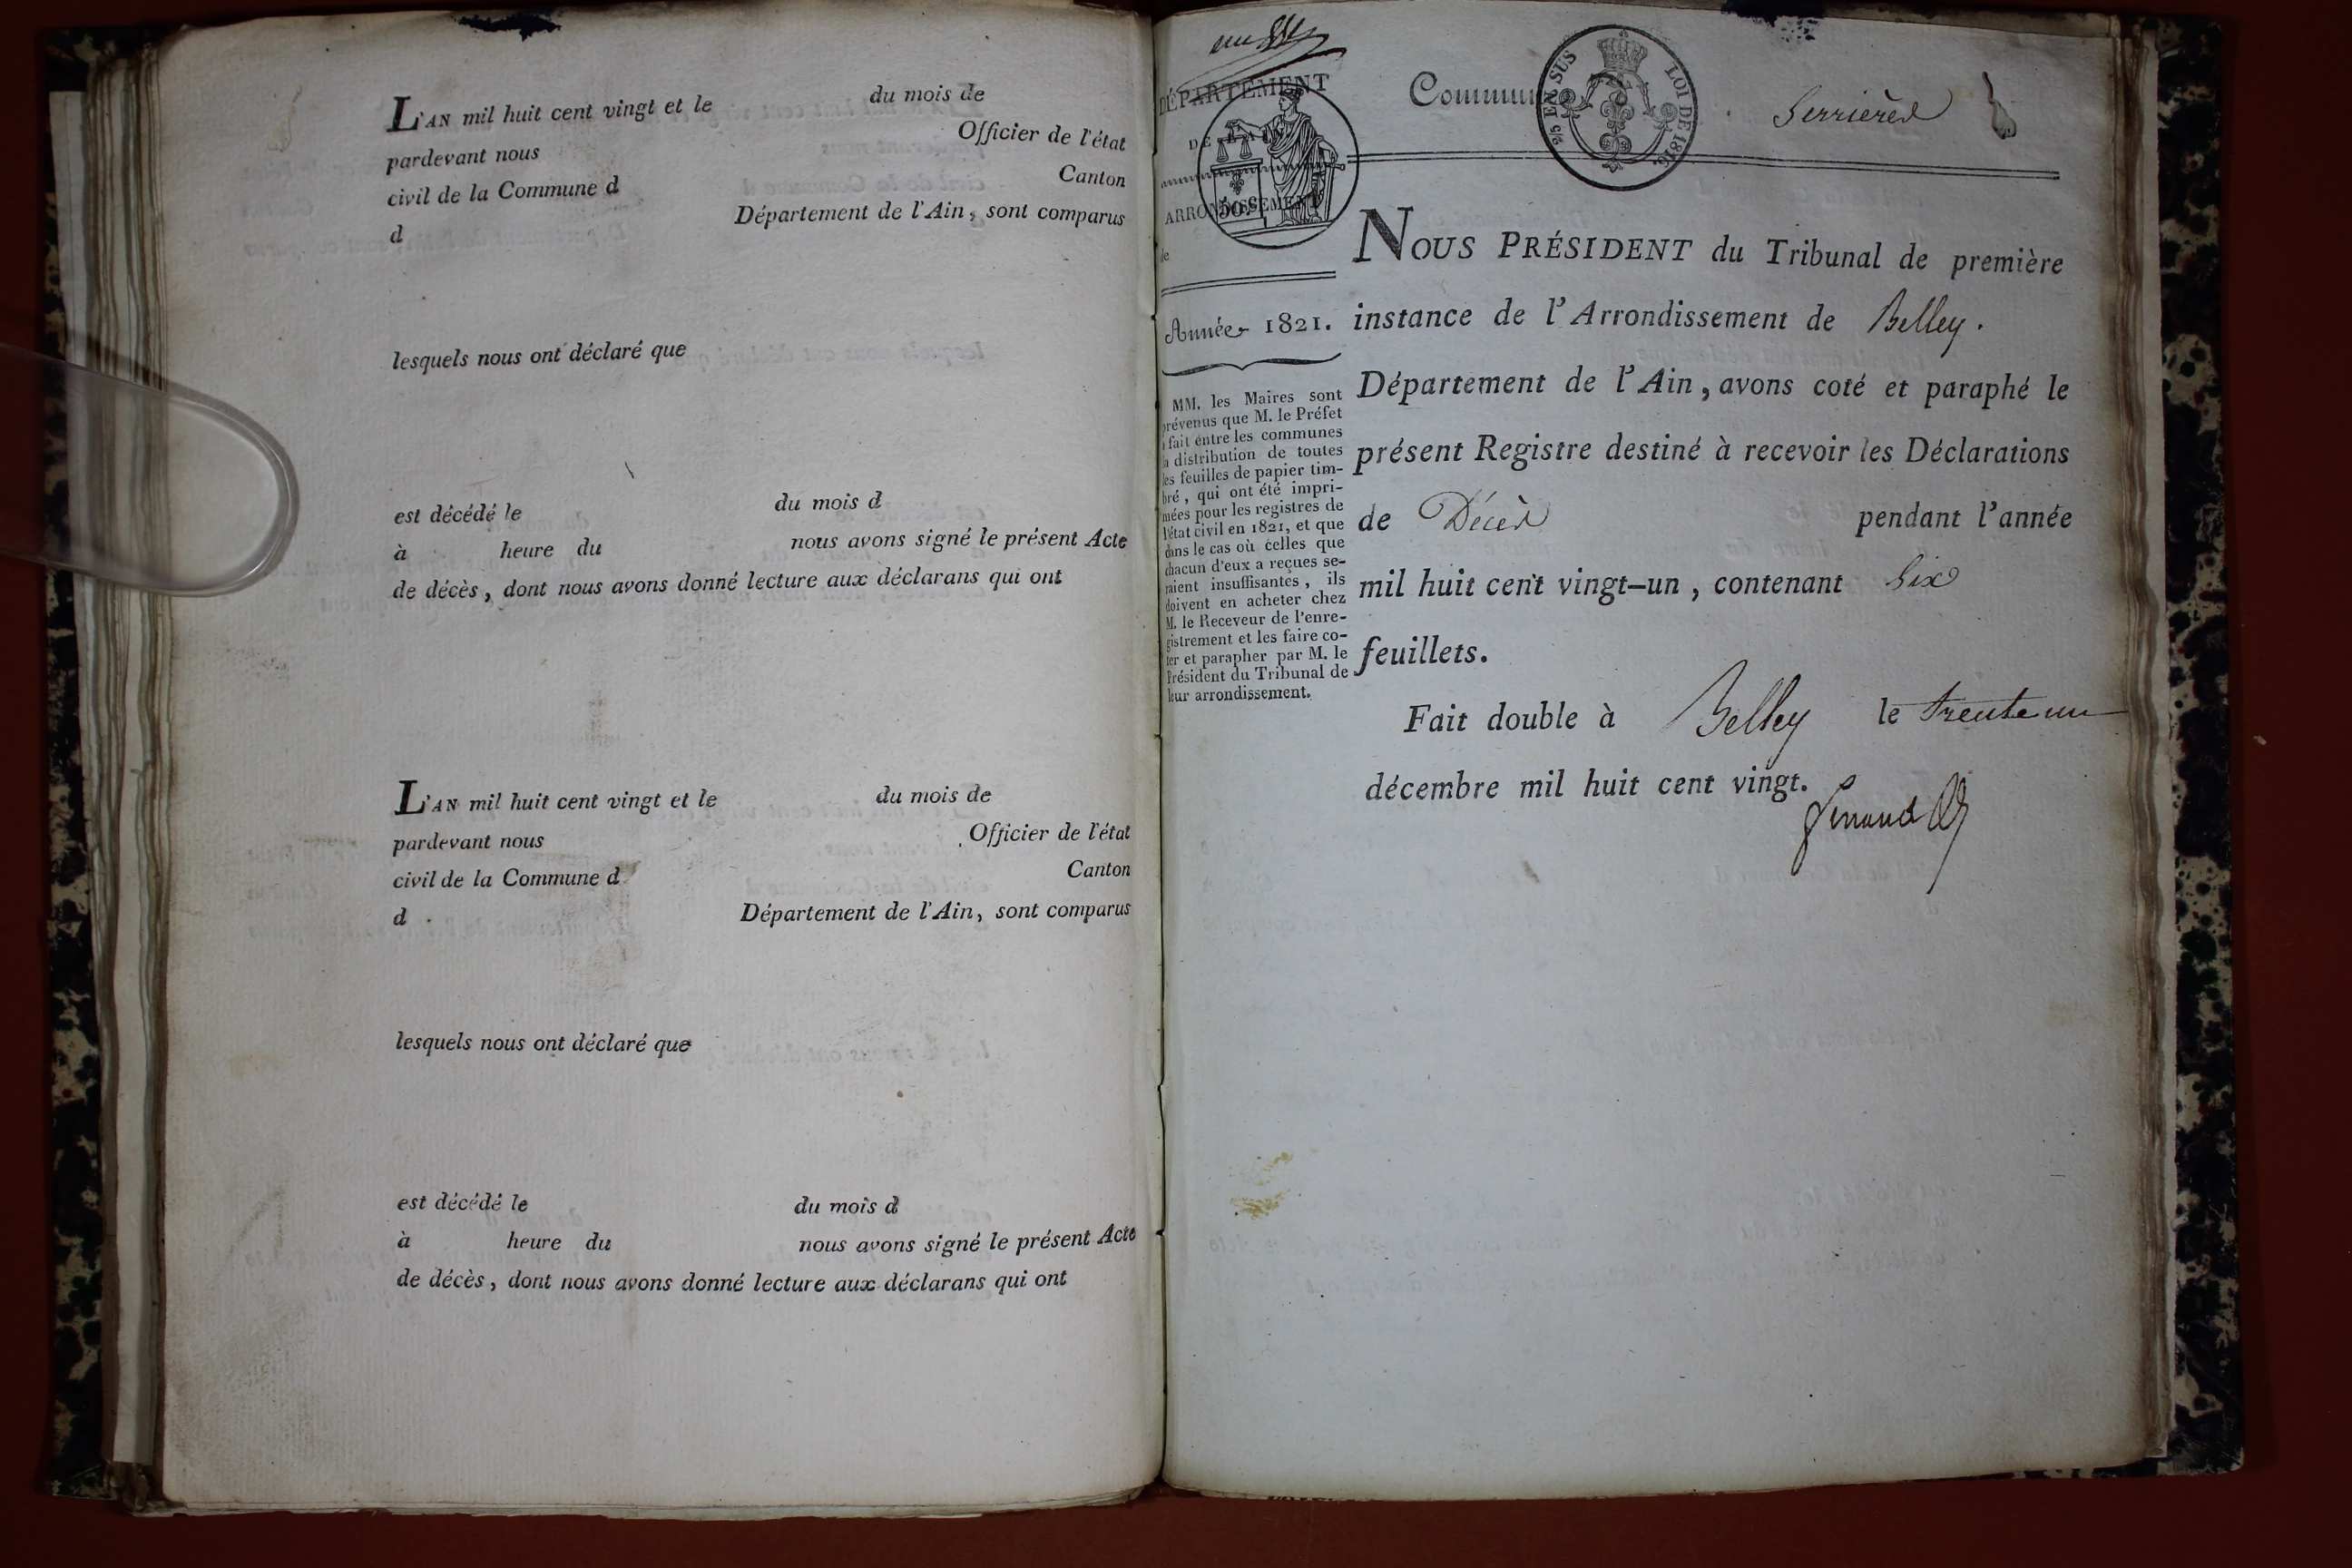 L'AN mil huit cent vingt et le du mois de
pardevant nous Officier de l'état
civil de la Commune d Canton
d Département de l'Ain, sont comparus
lesquels nous ont déclaré que
est décédé le du mois d
à heure du nous avons signé le présent Acte
de décès, dont nous avons donné lecture aux déclarans qui ont
L'AN mil huit cent vingt et le du mois de
pardevant nous Officier de l'état
civil de la Commune d Canton
d Département de l'Ain, sont comparus
lesquels nous ont déclaré que
est décédé le du mois d
à heure du nous avons signé le présent Acte
de décès, dont nous avons donné lecture aux déclarans qui ont
DÉPARTEMENT
DE L'AIN
ARRONDISSEMENT
de
50. C.
Année 1821.
MM. les Maires sont
prévenus que M. le Préfet
a fait entre les communes
la distribution de toutes
les feuilles de papier tim-
bré, qui ont été impri-
mées pour les registres de
l'état civil en 1821, et que
dans le cas où celles que
chacun d'eux a reçues se-
raient insuffisantes, ils
doivent en acheter chez
M. le Receveur de l'enre-
gistrement et les faire co-
ter et parapher par M. le
Président du Tribunal de
leur arrondissement.
Commune Serrières
2/5 EN SUS LOI DE 1816
NOUS PRÉSIDENT du Tribunal de première
instance de l'Arrondissement de Belley.
Département de l'Ain, avons coté et paraphé le
présent Registre destiné à recevoir les Déclarations
de Décès pendant l'année
mil huit cent vingt-un, contenant Six
feuillets.
Fait double à Belley le trente un
décembre mil huit cent vingt.